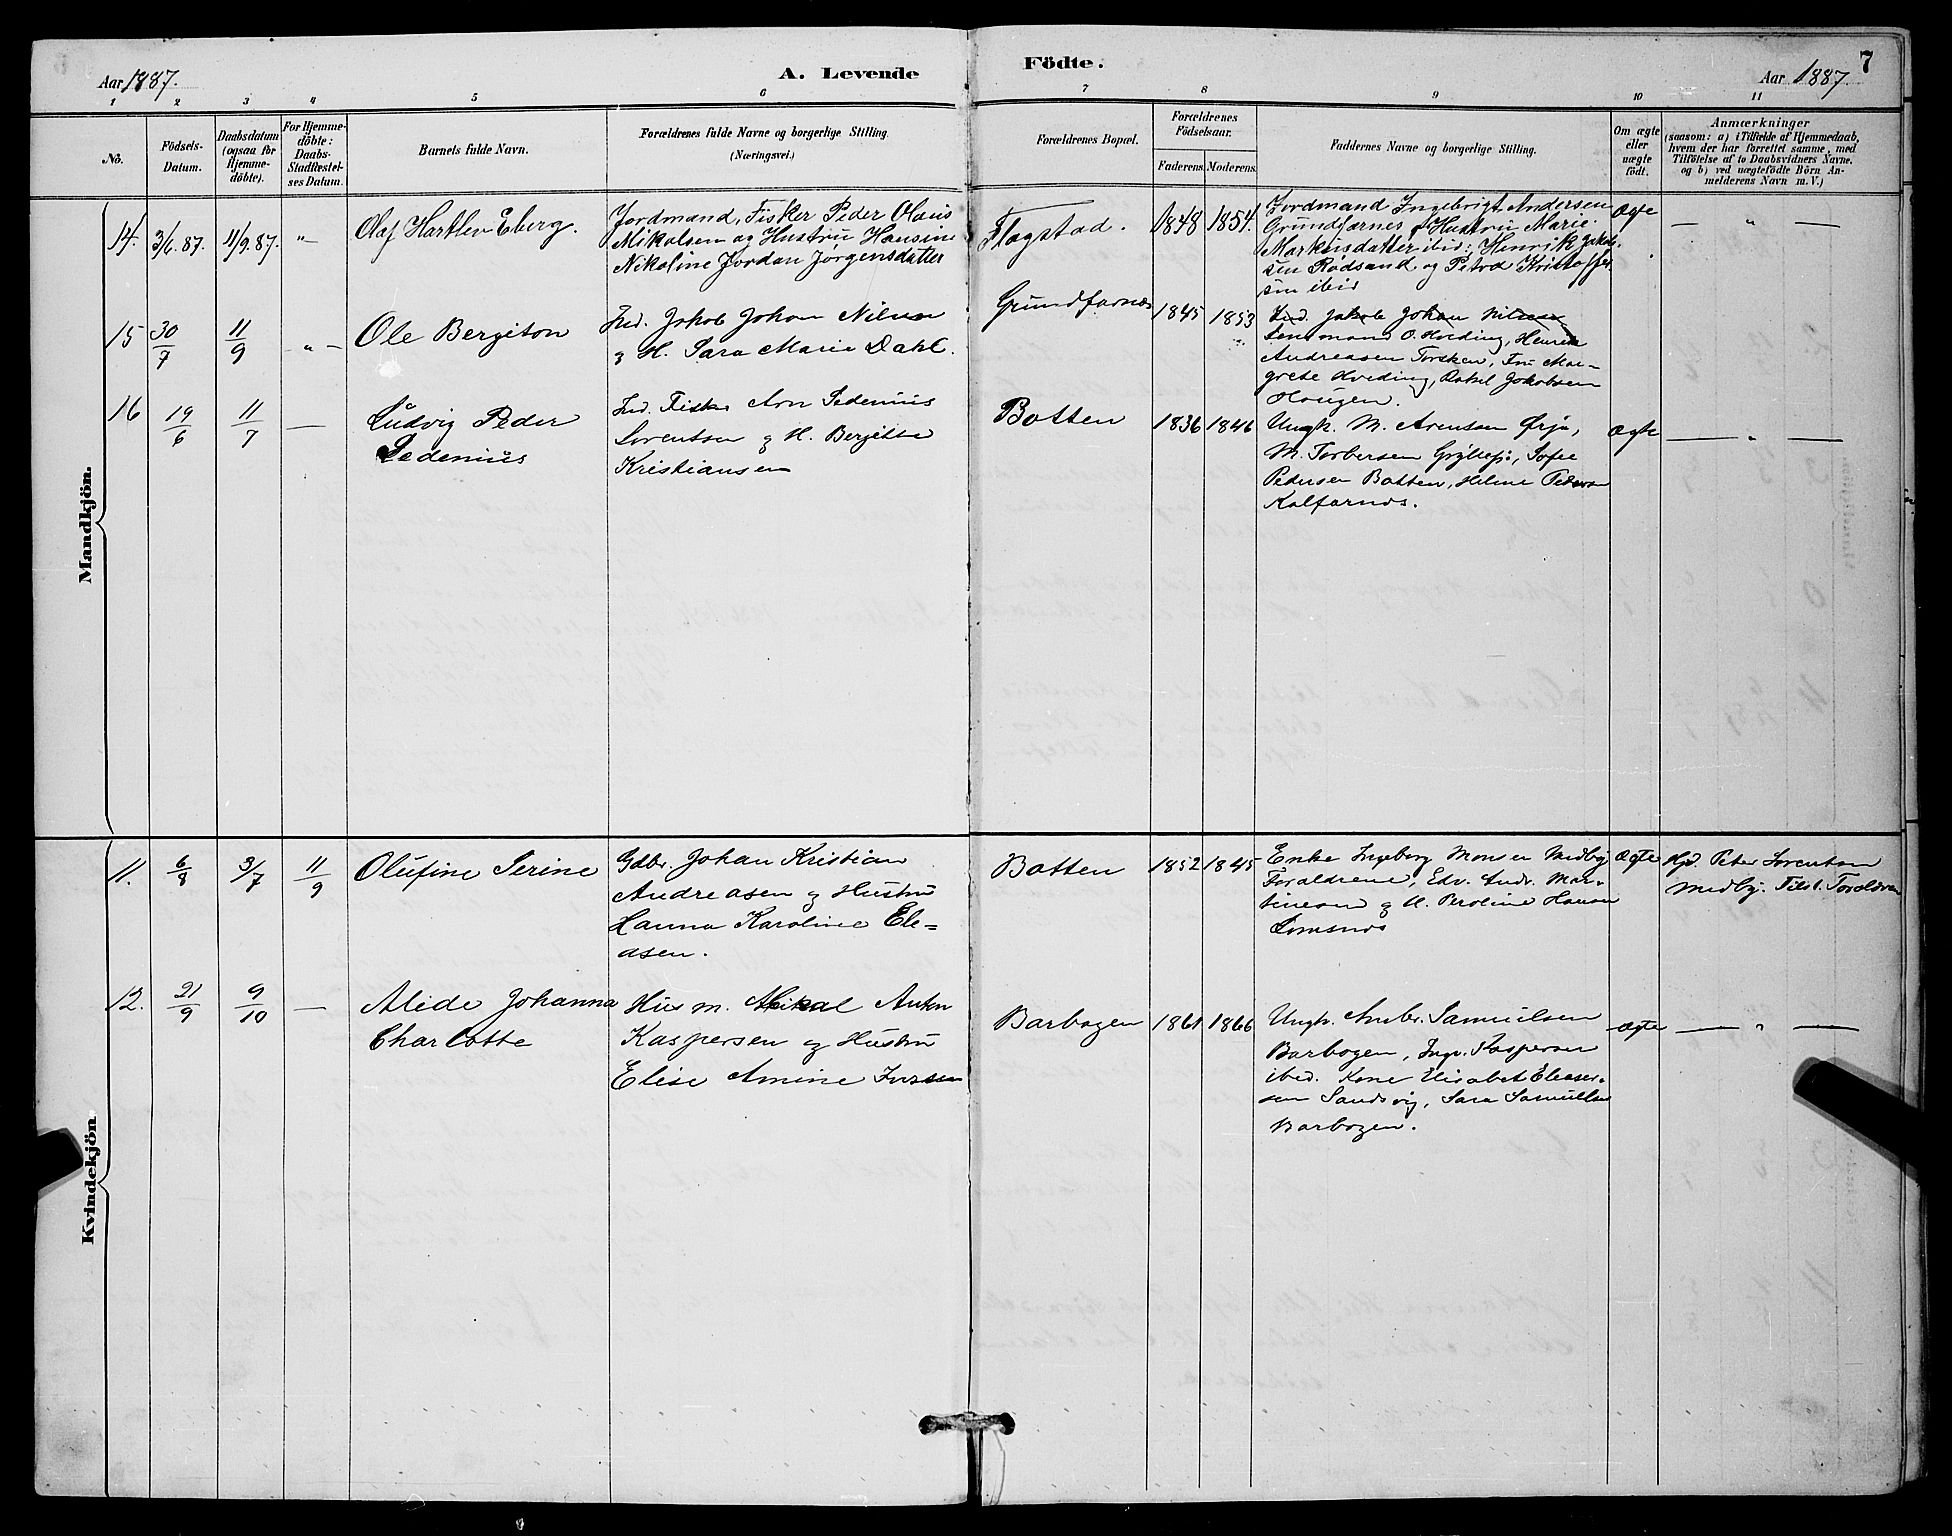 Aar 1887.
A. Levende
Födte.
Aar 1887.
7
1 2 3 4 5 6 7 8 9 10 11
No.
Födsels-
Datum.
Daabsdatum
(ogsaa for
Hjemme-
döbte).
For Hjemme-
döbte:
Daabs-
Stadfæstel-
ses Datum.
Barnets fulde Navn.
Forældrenes fulde Navne og borgerlige Stilling.
(Næringsvei.)
Forældrenes Bopæl.
Forældrenes
Födselsaar.
Faderens Moderens
Faddernes Navne og borgerlige Stilling.
Om ægte
eller
uægte
födt.
Anmærkninger
(saasom: a) i Tilfælde af Hjemmedaab,
hvem der har forrettet samme, med
Tilföielse af to Daabsvidners Navne.
og b) ved uægtefödte Börn An-
melderens Navn m. V.)
Mandkjön.
14. 3/6.87. 11/9.87. -"-
Olaf Hartlev Eberg.
Jordmand, Fisker Peder Olaus
Mikalsen og Hustru Hansine
Nikoline Jordan Jørgensdatter
Flagstad.
1848 1854.
Jordmand Ingebrigt Andersen
Grundfarnes & Hustru Marie
Markusdatter ibid; Henrik Jakob-
sen Rødsand og Petra Kristoffer
sen ibid
Ægte
— " —
15 30/7 11/9 -"-
Ole Bergiton
Ind. Jakob Johan Nilsen
g H. Sara Marie Dahl.
Grundfarnes
1845 1853
Ind. Jakob Johan Nilsen
Lensmand O. Hveding, Henrik
Andreasen Torsken, Fru Mar-
grete Hveding, Rakel Jakobsen
Haugen.
16 19/6 11/7 —
Ludvig Peder
Sedenius
Ind. Fisk. Arn Sedenius
Sorentsen g H. Bergitte
Kristiansen
Botten
1836 1846
Ungk. M. Arentsen Ørja,
M. Torbersen Gryllefj:, Sofie
Pedersen Botten, Heline Pedersen
Kalfarnes.
Ægte
— " —
Kvindekjön
11. 6/8 3/7 11/9
Olufine Serine
Gdbr. Johan Kristian
Andreasen g Hustru
Hanna Karoline Ele-
asen.
Botten
1852 1845
Enke Ingeborg Monsen Medby
Forældrene, Edv. Andr. Mar-
tinesen g H. Peroline Hansen
Lomsnes
Ægte
Hjd. Peter Sorentsen
Medby. Tilst. Forældrene
12. 21/9 9/10 —
Alide Johanna
Charlotte
Hus m. Mikal Anton
Kaspersen og Hustru
Elise Amine
Barbogen
1861 1866
Ungk. Ambr. Samuelsen
Barbogen, Ingv. Kaspersen
ibid. Kone Elisabet Eleaser-
sen Sandsvig, Sara Samuelsen
Barbogen.
Ægte
— " —